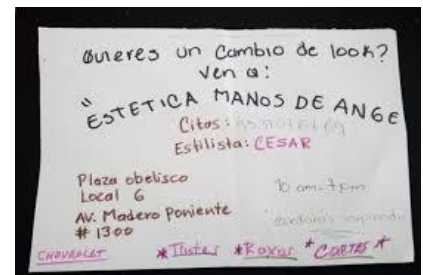 Quieres un cambio de look?
Ven a:
"ESTETICA MANOS DE ANGE
Citas:
Estilista: CESAR
Plaza obelisco
Local 6
10 am - 7 pm
AV. Madero Poniente
# 1300
CHEVROLET *Tintes *Rayos *CORTES *